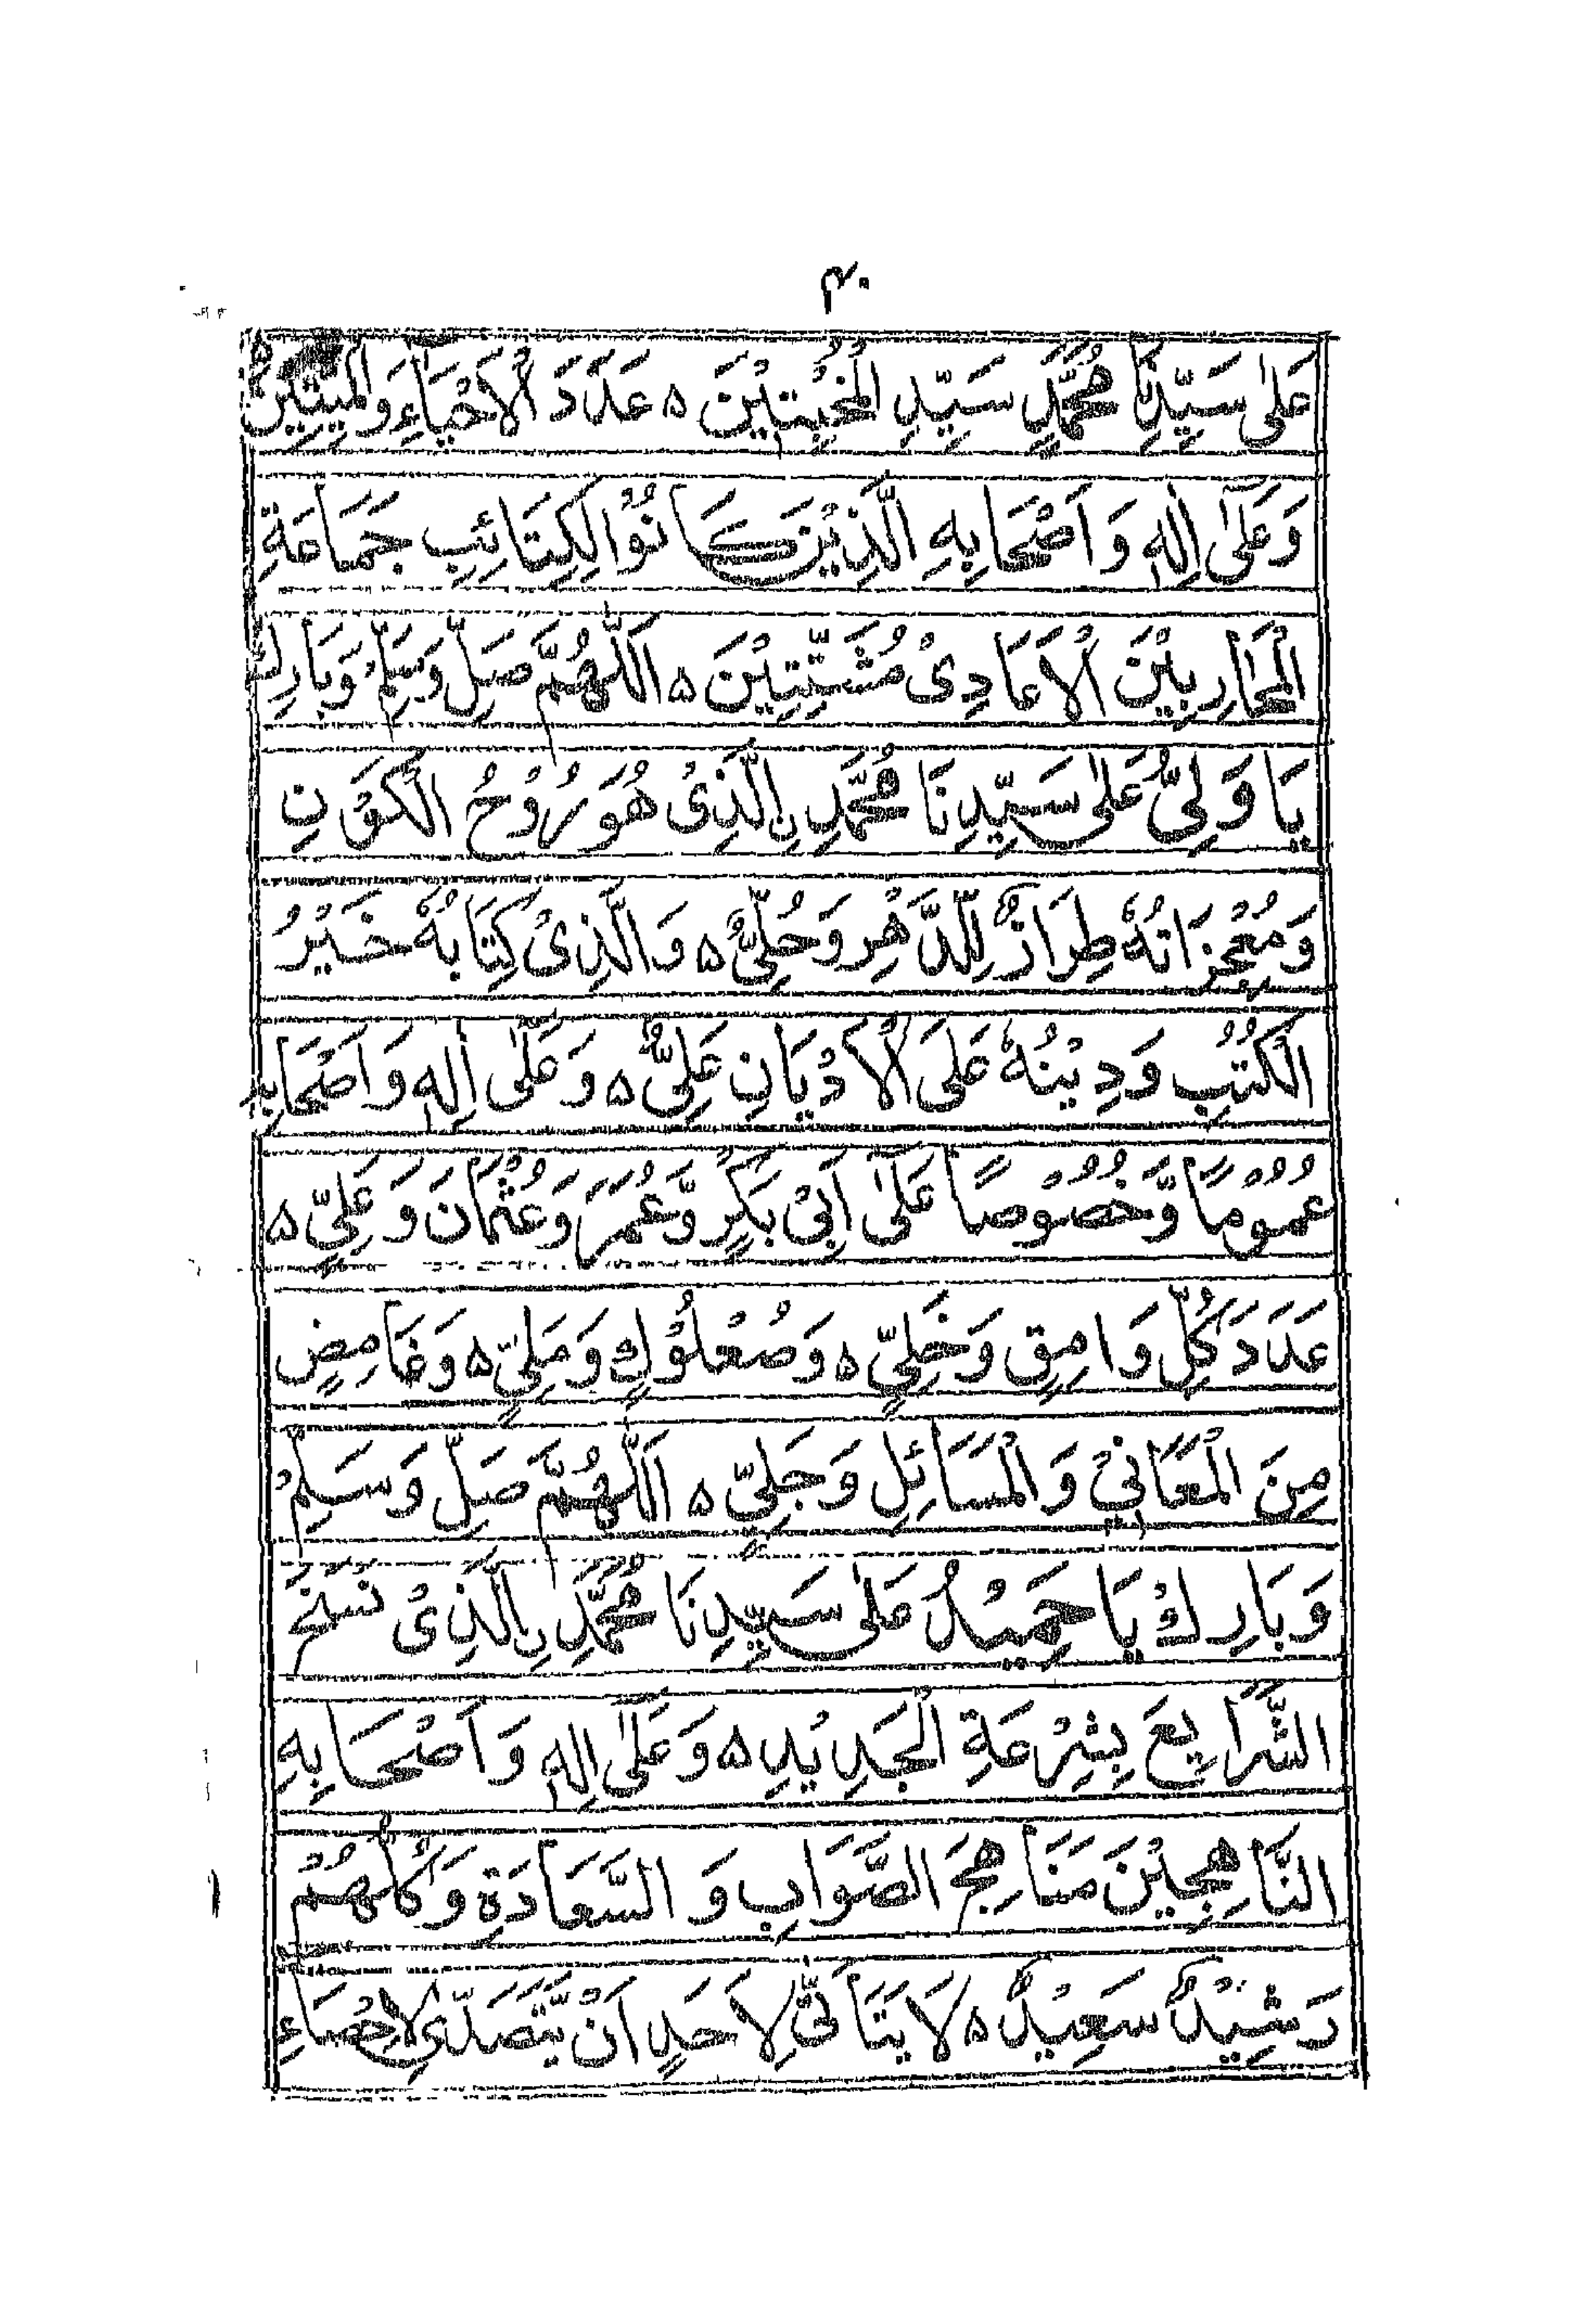 ۴۰
عَلٰى سَيِّدِنَا مُحَمَّدٍ سَيِّدِ الْمُخْبِتِيْنَ ۵ عَدَدَ الْاَحْيَاءِ وَالْمَيِّتِيْنَ
وَعَلٰى اٰلِهٖ وَاَصْحَابِهِ الَّذِيْنَ كَانُوْا لِكَتَائِبِ جَمَاعَةِ
الْمُحَارِبِيْنَ الْاَعَادِىْ مُشَتِّتِيْنَ ۵ اَللّٰهُمَّ صَلِّ وَسَلِّمْ وَبَارِكْ
يَا وَلِىُّ عَلٰى سَيِّدِنَا مُحَمَّدِ نِالَّذِىْ هُوَ رُوْحُ الْكَوْنِ
وَمُعْجِزَاتُهٗ طِرَازٌ لِلدَّهْرِ وَحُلِىٌّ ۵ وَالَّذِىْ كِتَابُهٗ خَيْرُ
الْكُتُبِ وَدِيْنُهٗ عَلَى الْاَدْيَانِ عَلِىٌّ ۵ وَعَلٰى اٰلِهٖ وَاَصْحَابِهٖ
عُمُوْمًا وَّخُصُوْصًا عَلٰى اَبِىْ بَكْرٍ وَّعُمَرَ وَعُثْمَانَ وَعَلِىٍّ ۵
عَدَدَ كُلِّ وَامِقٍ وَخَلِىٍّ ۵ وَصُعْلُوْكٍ وَمَلِىٍّ ۵ وَغَامِضٍ
مِنَ الْمَعَانِىْ وَالْمَسَائِلِ وَجَلِىٍّ ۵ اَللّٰهُمَّ صَلِّ وَسَلِّمْ
وَبَارِكْ يَا حَمِيْدُ عَلٰى سَيِّدِنَا مُحَمَّدِ نِالَّذِىْ نَسَخَ
الشَّرَايِعَ بِشِرْعَةِ الْجَدِيْدِ ۵ وَعَلٰى اٰلِهٖ وَاَصْحَابِهِ
النَّاهِجِيْنَ مَنَاهِجَ الصَّوَابِ وَ السَّعَادَةِ وَكُلُّهُمْ
رَشِيْدٌ سَعِيْدٌ ۵ لَا يَتَاَتّٰى لِاَحَدٍ اَنْ يَّتَصَدّٰى لِاِحْصَاءِ